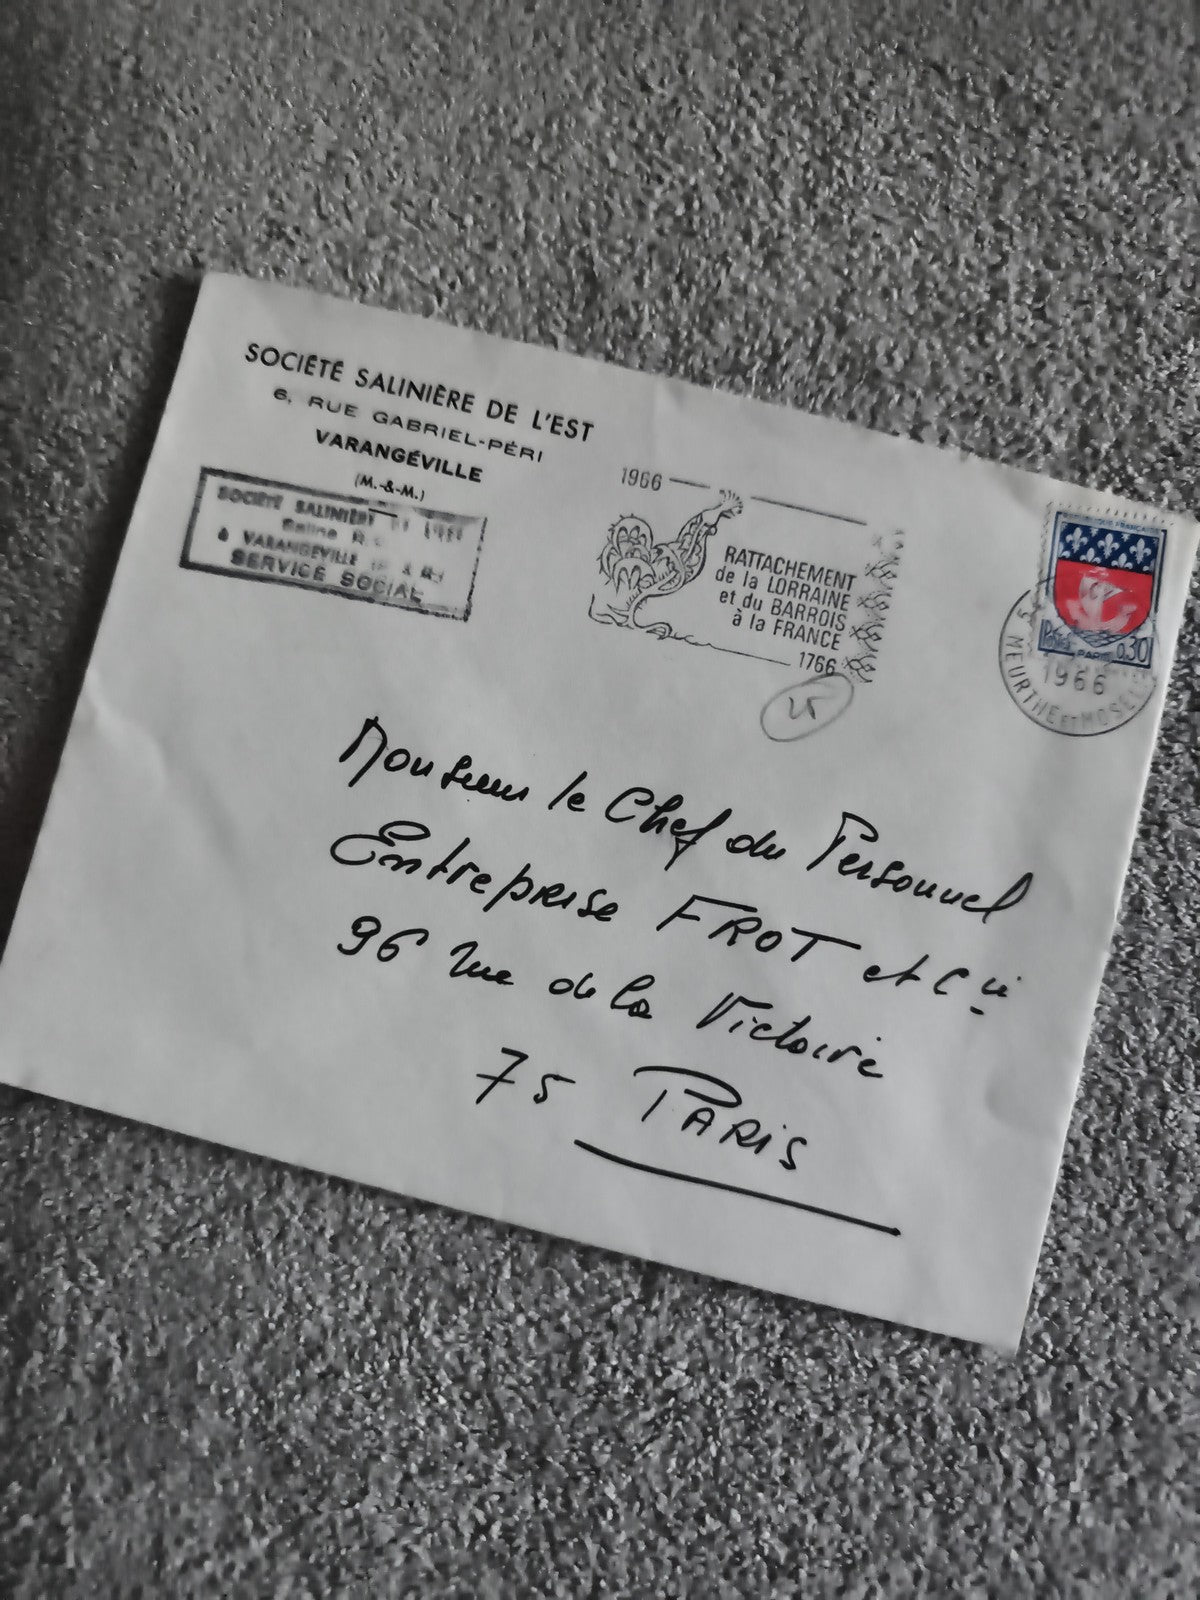 SOCIÉTÉ SALINIÈRE DE L'EST
6, RUE GABRIEL-PÉRI
VARANGÉVILLE
(M.-&-M.)
SOCIÉTÉ SALINIÈRE DE L'EST
Saline
à VARANGEVILLE & M)
SERVICE SOCIAL
1966
RATTACHEMENT
de la LORRAINE
et du BARROIS
à la FRANCE
1766
25
REPUBLIQUE FRANCAISE
Postes 0,30
PARIS
1966
MEURTHE ET MOSELLE
Monsieur le Chef du Personnel
Entreprise FROT et Cie
96 Rue de la Victoire
75 PARIS